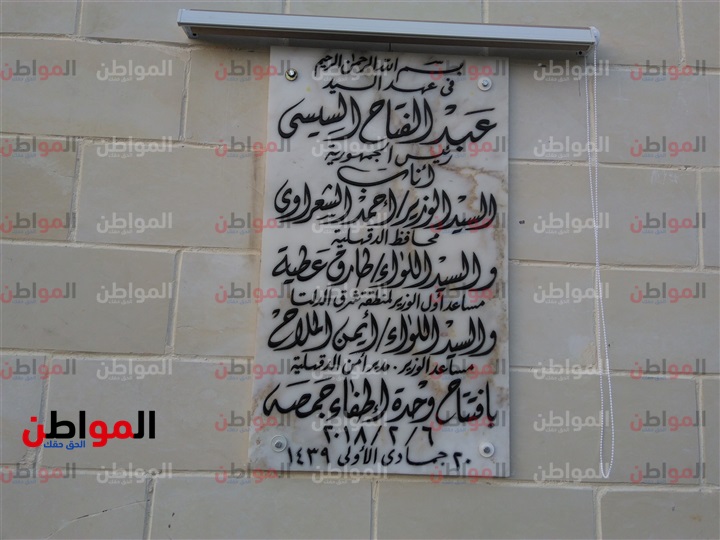 بسم الله الرحمن الرحيم
فى عهد السيد
عبد الفتاح السيسى
رئيس الجمهورية
أناب
السيد الوزير/ أحمد الشعراوى
محافظ الدقهلية
والسيد اللواء/ طارق عطية
مساعد أول الوزير لمنطقة شرق الدلتا
والسيد اللواء/ أيمن الملاح
مساعد الوزير . مدير أمن الدقهلية
بافتتاح وحدة إطفاء جمصه
٢٠١٨/٢/٦
٢٠ جمادى الأولى ١٤٣٩
المواطن
الحق حقك